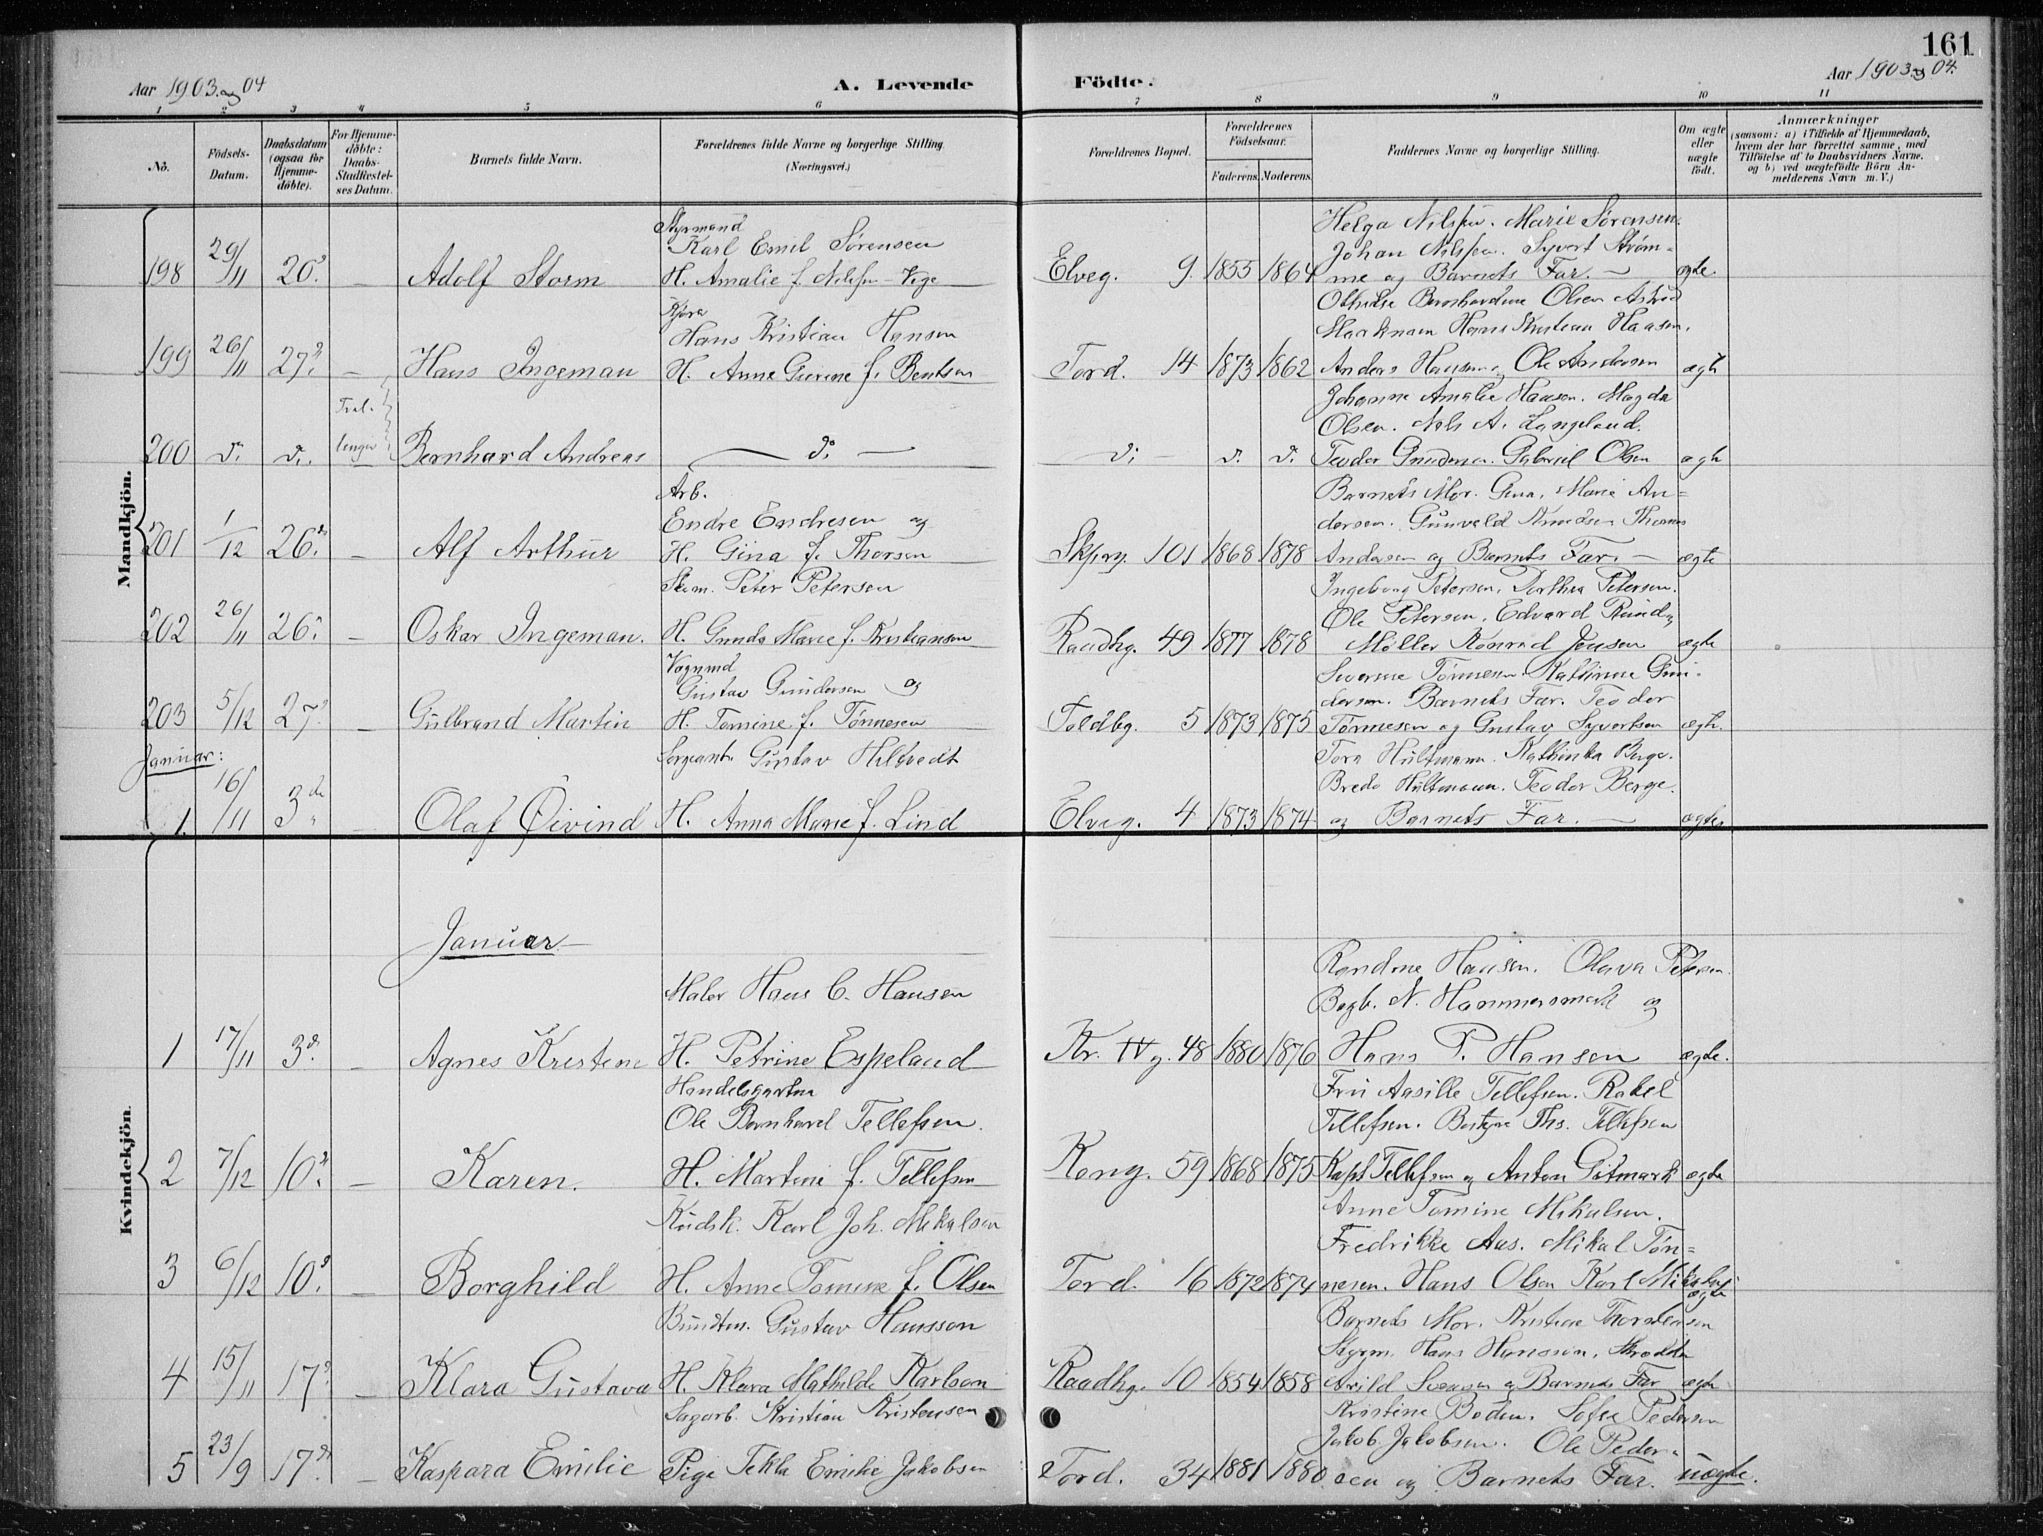 161
Aar 1903 og 04
A. Levende Födte.
Aar 1903 og 04.
1 2 3 4 5 6 7 8 9 10 11
No.
Födsels-Datum.
Daabsdatum (ogsaa for Hjemme-döbte).
For Hjemme-döbte: Daabs-Stadfæstel-ses Datum.
Barnets fulde Navn.
Forældrenes fulde Navne og borgerlige Stilling. (Næringsvei.)
Forældrenes Bopæl.
Forældrenes Födselsaar.
Faderens. Moderens.
Faddernes Navne og borgerlige Stilling.
Om ægte eller uægte födt.
Anmærkninger
(saasom: a) i Tilfælde af Hjemmedaab, hvem der har forrettet samme, med Tilföielse af to Daabsvidners Navne. og b) ved uægtefödte Börn An-melderens Navn m. V.)
Mandkjön.
Styrmand
Karl Emil Sørensen
Helga Nilsen. Marie Sørensen.
Johan Nilsen. Syvert Strøm-
198 29/11 20. – Adolf Storm H. Amalie f. Nilsen – Vege Elveg. 9. 1855 1864 me og Barnets Far. – ægte.
Hans Kristian Hansen
Othilde Bernhardine Olsen Astrid
Hans Kristian Hansen.
199 26/11 27. – Hans Ingeman H. Anne Gurine f. Bentsen Tord. 14 1873 1862 Anders Hansen og Ole Andersen ægte
Johanne Amalie Hansen. Magda
Olsen. Nils A. Langeland.
200 d. d. Tvil-linger Bernhard Andreas – d: – d: d. d. Teodor Gundersen. Gabriel Olsen ægte
Arb.
Endre Endresen og
Barnets Mor. Gina, Marie An-
dersen. Gunvald Knudsen Thomas
201 1/12 26. – Alf Arthur H. Gina f. Thorsen Skipsg. 101 1868 1878 Andersen og Barnets Far. – ægte
Skom. Peter Petersen
Ingeborg Petersen, Dorthea Petersen.
Ole Petersen. Edvard Rund
202 26/11 26. – Oskar Ingeman. H. Gunda Marie f. Kristiansen Raadhg. 49 1877 1878 Møller Konrad Jensen ægte
Vognmd
Gustav Gundersen og
Severine Tønnesen. Kathrine Gun-
dersen. Barnets Far. Teodor
203 5/12 27. – Gulbrand Martin H. Tomine f. Tønnesen Toldbg. 5 1873 1875 Tønnesen og Gustav Syvertsen ægte.
Januar:
Sergeant Gustav Hiltvedt
Tora Hultmann. Kathinka Berge.
Bredo Hultmann. Teodor Berge.
1. 16/11 3de – Olaf Øivind H. Anna Marie f. Lind Elveg. 4 1873 1874 og Barnets Far. – ægte
Kvindekjön.
Januar
Maler Hans C. Hansen
Randine Hansen. Olava Petersen
Bogb. N. Hammersmark og
1 17/11 3d. – Agnes Kristine H. Petrine Espeland Kr. IV g. 48 1880 1876 Hans P. Hansen ægte.
Handelsgartner
Ole Bernhard Tellefsen.
Fru Aasille Tellefsen. Rakel
Tellefsen. Bestyr Ths. Tellefsen
2 7/12 10. – Karen. H. Martine f. Tellefsen Kong. 59 1868 1875 Kapt Tellefsen og Anton Gitmark ægte
Kudsk. Karl Joh. Mikalsen
Anne Tomine Mikalsen.
Fredrikke Aas. Mikal Tøn-
3 6/12 10. Borghild H. Anne Tomine f. Olsen Tord. 16 1872 1874 nesen. Hans Olsen Karl Mikalsen ægte
Bundtm. Gustav Hansson
Barnets Mor. Kristine Thorstensen
Styrm. Hans Hansson. Skredder
4 15/11 17. – Klara Gustava H. Klara Mathilde Karlson Raadhg. 10 1854 1858 Arild Svensen og Barnets Far ægte
Sagarb. Kristian Kristensen
Kristine Boden. Sofie Pedersen
Jakob Jakobsen. Ole Peder-
5 23/9 17. – Kaspara Emilie Pige Tekla Emilie Jakobsen Tord. 34 1881 1880 sen og Barnets Far. uægte.